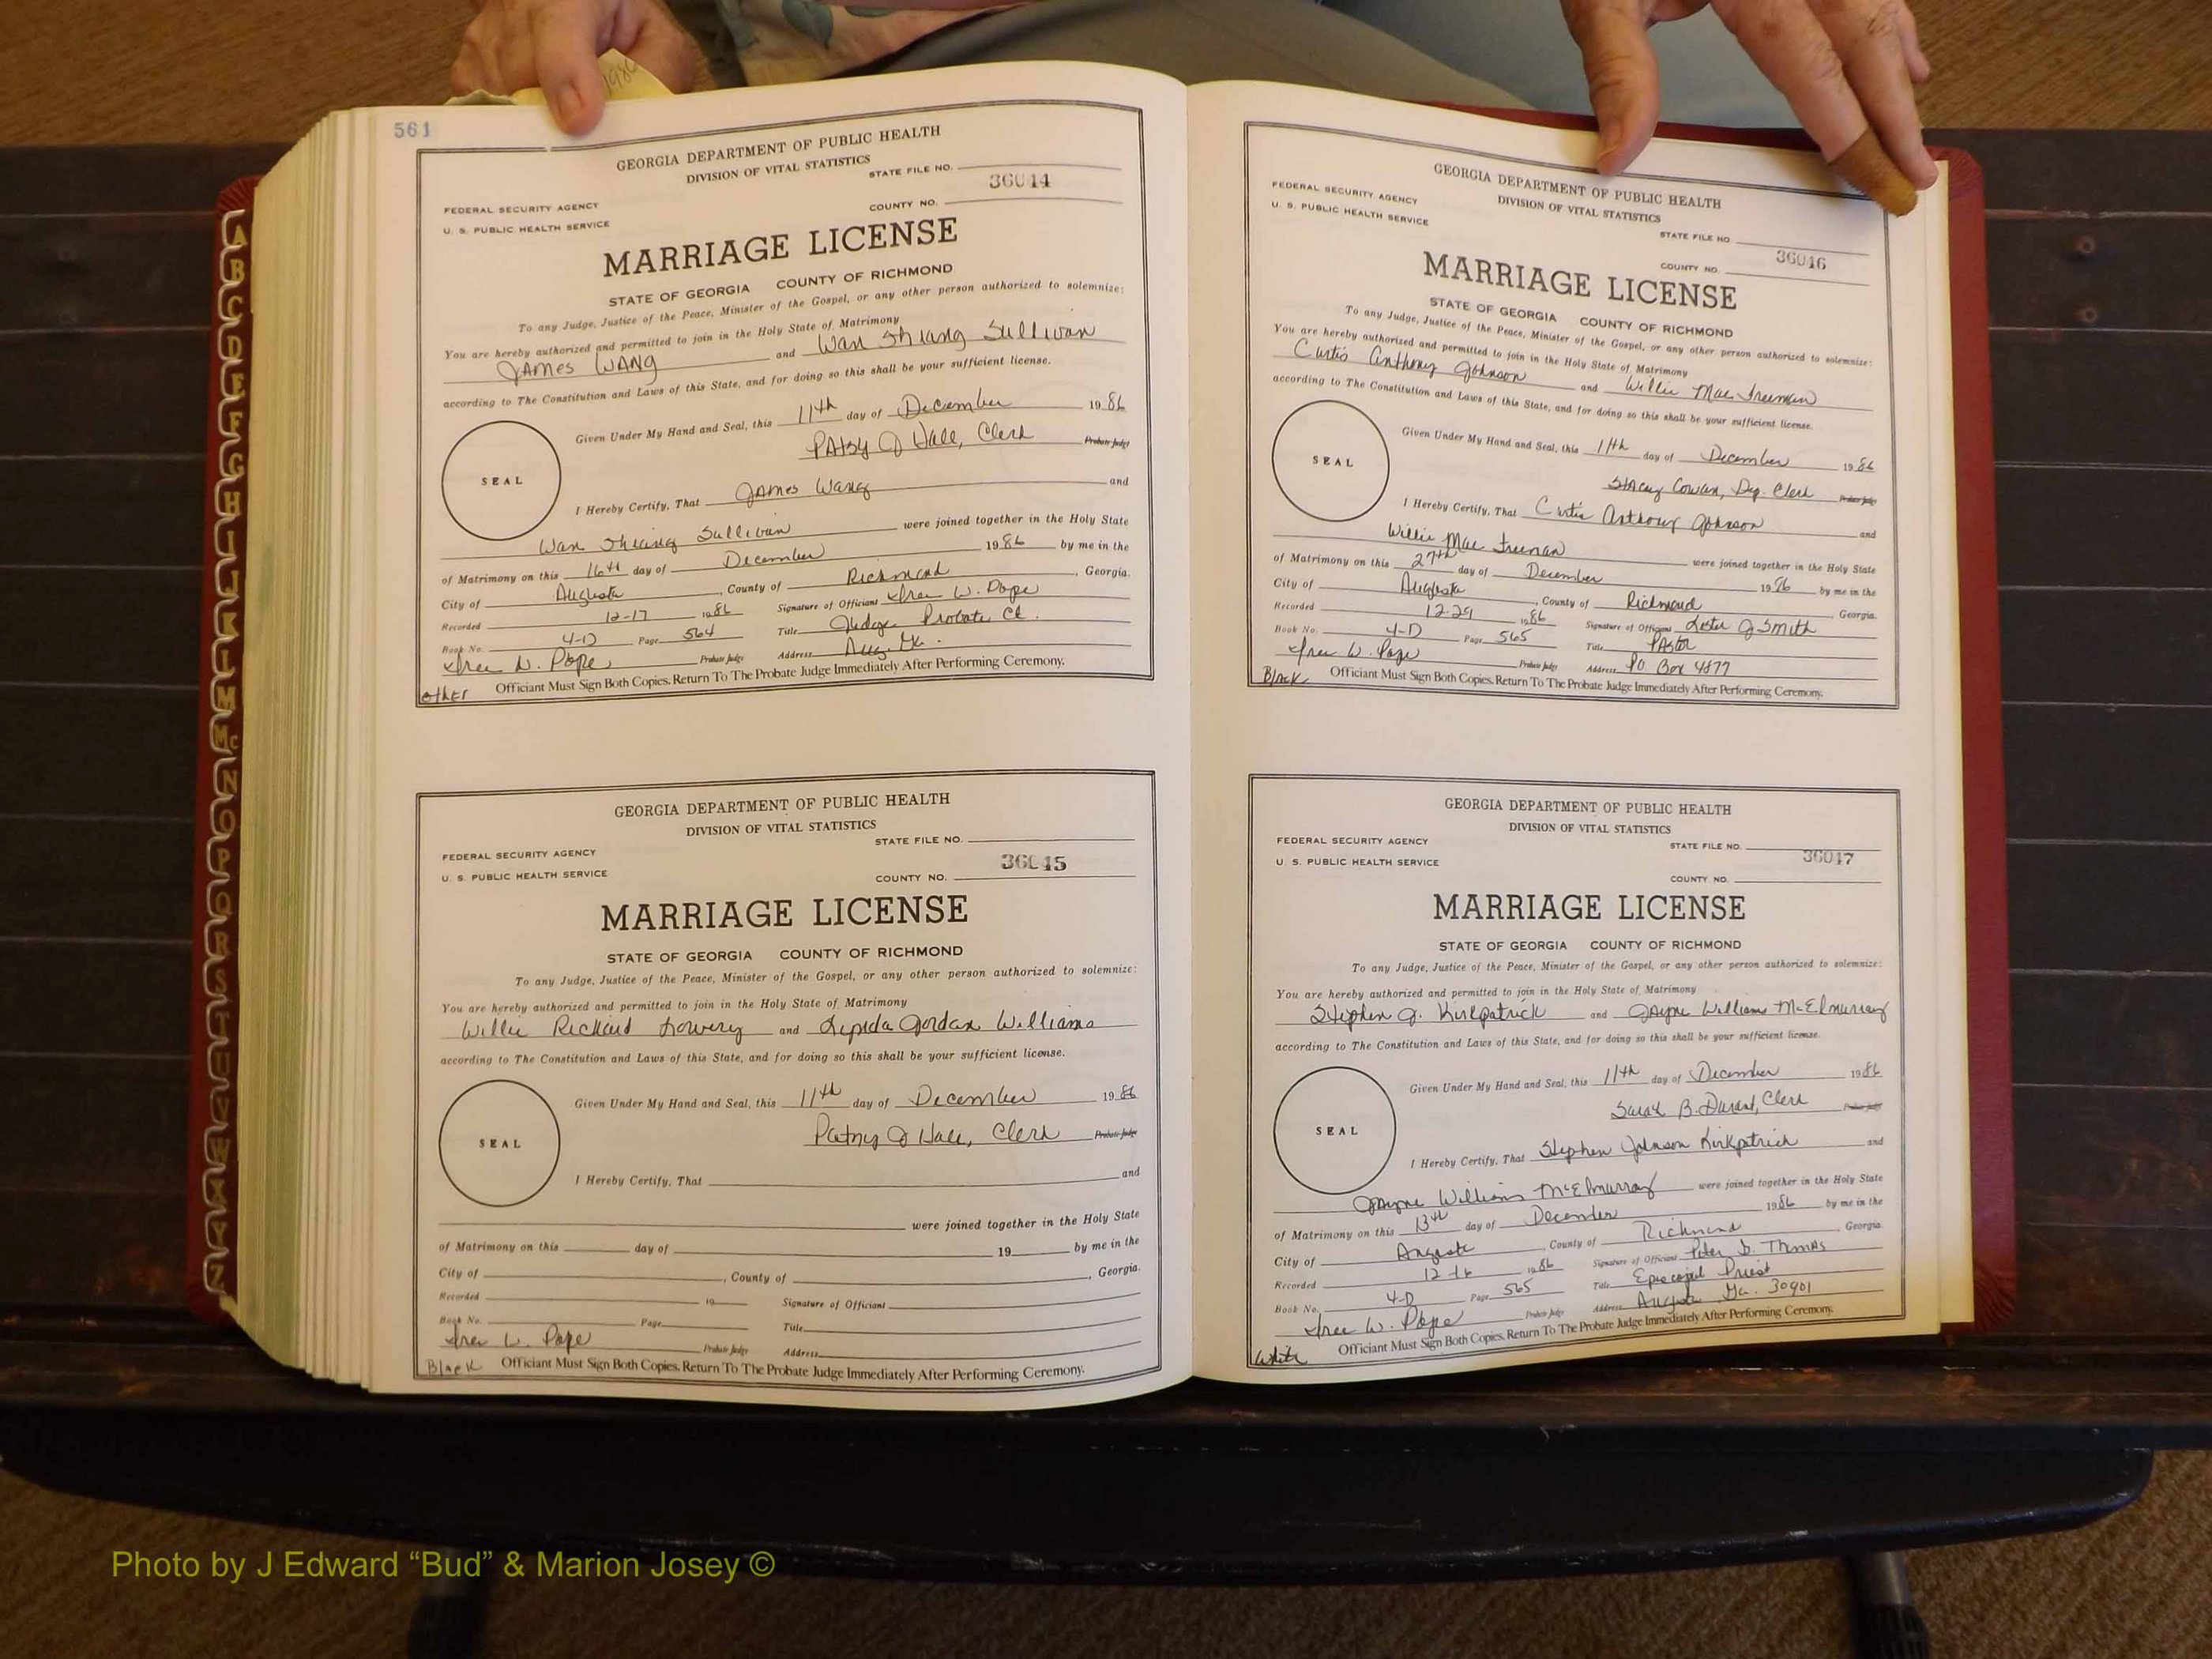 1986
561
GEORGIA DEPARTMENT OF PUBLIC HEALTH
DIVISION OF VITAL STATISTICS
STATE FILE NO.
36044
FEDERAL SECURITY AGENCY
COUNTY NO.
U. S. PUBLIC HEALTH SERVICE
MARRIAGE LICENSE
STATE OF GEORGIA COUNTY OF RICHMOND
To any Judge, Justice of the Peace, Minister of the Gospel, or any other person authorized to solemnize:
You are hereby authorized and permitted to join in the Holy State of Matrimony
James Wang and Wan Shiang Sullivan
according to The Constitution and Laws of this State, and for doing so this shall be your sufficient license.
Given Under My Hand and Seal, this 11th day of December 19 86
Patsy J Hall, Clerk Probate Judge
SEAL
I Hereby Certify, That James Wang and
Wan Shiang Sullivan were joined together in the Holy State
of Matrimony on this 16th day of December 19 86 by me in the
City of Augusta, County of Richmond, Georgia.
Recorded 12-17 19 86 Signature of Officiant W. Pope
Book No. 4-D Page 564 Title Judge Probate Ct.
W. Pope Probate Judge Address Aug. Ga.
Other Officiant Must Sign Both Copies. Return To The Probate Judge Immediately After Performing Ceremony.
GEORGIA DEPARTMENT OF PUBLIC HEALTH
DIVISION OF VITAL STATISTICS
STATE FILE NO.
36045
FEDERAL SECURITY AGENCY
COUNTY NO.
U. S. PUBLIC HEALTH SERVICE
MARRIAGE LICENSE
STATE OF GEORGIA COUNTY OF RICHMOND
To any Judge, Justice of the Peace, Minister of the Gospel, or any other person authorized to solemnize:
You are hereby authorized and permitted to join in the Holy State of Matrimony
Willie Richard Lowery and Lynda Jordan Williams
according to The Constitution and Laws of this State, and for doing so this shall be your sufficient license.
Given Under My Hand and Seal, this 11th day of December 19 86
Patsy J Hall, Clerk Probate Judge
SEAL
I Hereby Certify, That and
were joined together in the Holy State
of Matrimony on this day of 19 by me in the
City of , County of , Georgia.
Recorded 19 Signature of Officiant
Book No. Page Title
W. Pope Probate Judge Address
Black Officiant Must Sign Both Copies. Return To The Probate Judge Immediately After Performing Ceremony.
GEORGIA DEPARTMENT OF PUBLIC HEALTH
DIVISION OF VITAL STATISTICS
FEDERAL SECURITY AGENCY
U. S. PUBLIC HEALTH SERVICE
STATE FILE NO.
36046
COUNTY NO.
MARRIAGE LICENSE
STATE OF GEORGIA COUNTY OF RICHMOND
To any Judge, Justice of the Peace, Minister of the Gospel, or any other person authorized to solemnize:
You are hereby authorized and permitted to join in the Holy State of Matrimony
Curtis Anthony Johnson and Willie Mae Freeman
according to The Constitution and Laws of this State, and for doing so this shall be your sufficient license.
Given Under My Hand and Seal, this 11th day of December 19 86
Stacey Cowan, Dep. Clerk Probate Judge
SEAL
I Hereby Certify, That Curtis Anthony Johnson and
Willie Mae Freeman were joined together in the Holy State
of Matrimony on this 27th day of December 19 76 by me in the
City of Augusta, County of Richmond Georgia.
Recorded 12-29 19 86 Signature of Officiant Lester J Smith
Book No. 4-D Page 565 Title Pastor
W. Pope Probate Judge Address PO Box 4877
Black Officiant Must Sign Both Copies. Return To The Probate Judge Immediately After Performing Ceremony.
GEORGIA DEPARTMENT OF PUBLIC HEALTH
DIVISION OF VITAL STATISTICS
FEDERAL SECURITY AGENCY
STATE FILE NO.
U. S. PUBLIC HEALTH SERVICE
36047
COUNTY NO.
MARRIAGE LICENSE
STATE OF GEORGIA COUNTY OF RICHMOND
To any Judge, Justice of the Peace, Minister of the Gospel, or any other person authorized to solemnize:
You are hereby authorized and permitted to join in the Holy State of Matrimony
Stephen J. Kirkpatrick and Jayne Williams McElmurray
according to The Constitution and Laws of this State, and for doing so this shall be your sufficient license.
Given Under My Hand and Seal, this 11th day of December 19 86
Sarah B. Durant, Clerk Probate Judge
SEAL
I Hereby Certify, That Stephen Johnson Kirkpatrick and
Jayne Williams McElmurray were joined together in the Holy State
of Matrimony on this 13th day of December 19 86 by me in the
City of Augusta, County of Richmond, Georgia.
Recorded 12-16 19 86 Signature of Officiant Peter D. Thomas
Book No. 4-D Page 565 Title Episcopal Priest
W. Pope Probate Judge Address Augusta Ga. 30901
White Officiant Must Sign Both Copies. Return To The Probate Judge Immediately After Performing Ceremony.
A
B
C
D
E
F
G
H
I
J
K
L
M
Mc
N
O
P
Q
R
S
T
U
V
W
X
Y
Z
Photo by J Edward “Bud” & Marion Josey ©